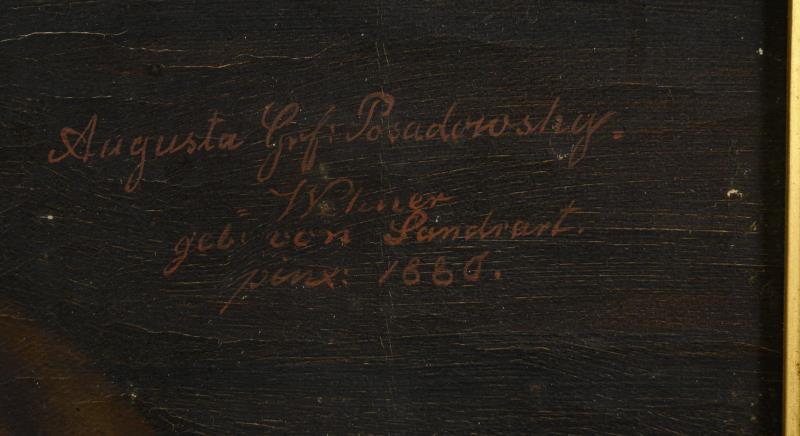 Augusta Grf: Posadowsky.
= Wehner
geb: von Sandrart.
pinx: 1880.